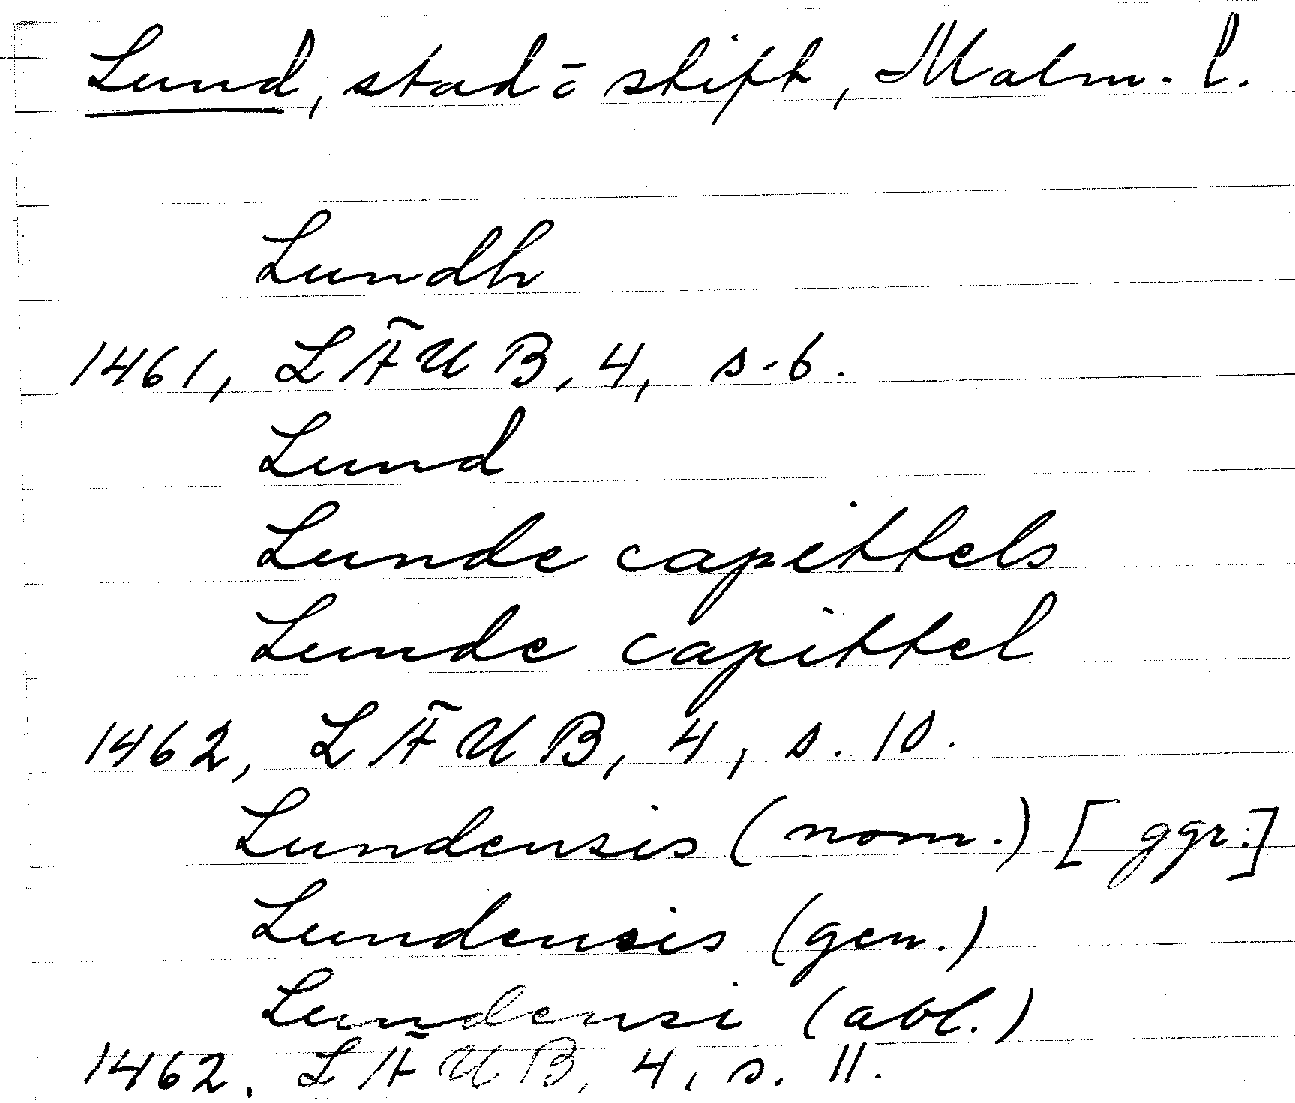 Lund, stad o shift, Malm. l.
Lundh
1461, LÄUB, 4, s. 6.
Lund
Lunde capittels
Lunde capittel
1462, LÄUB, 4, s. 10.
Lundensis (nom.) [ggr.]
Lundensis (gen.)
Lundensi (abl.)
1462, LÄUB, 4, s. 11.